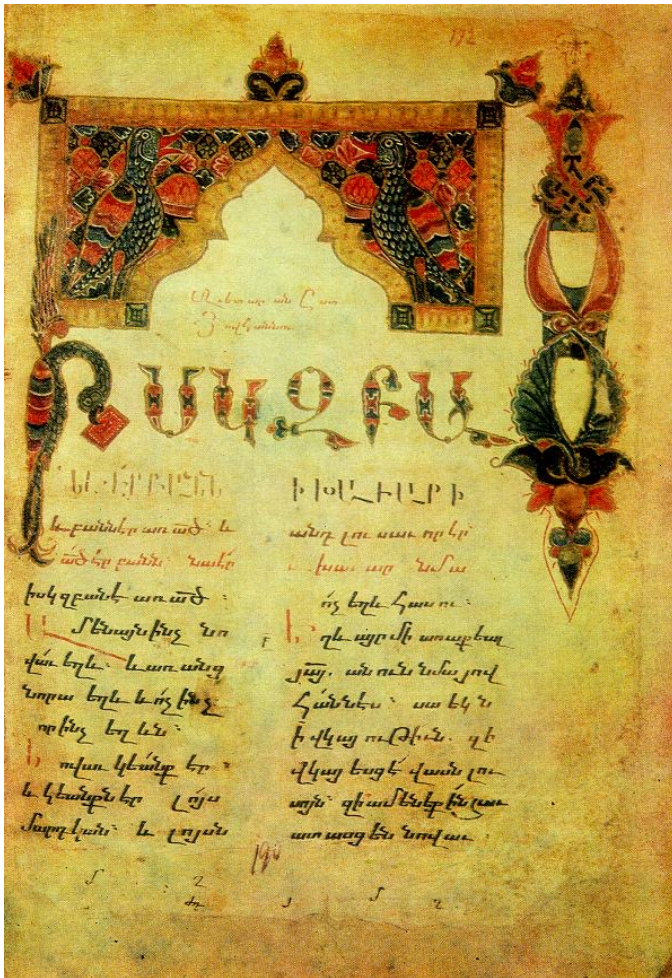 192
Աւետարան Ըստ
Յովհաննու
Ի ՍԿԶԲԱ
ՆԷ ԷՐ ԲԱՆՆ
և բանն էր առ ած՝ և
ած էր բանն։ նա էր
իսկզբանէ առ ած։
Ամենայն ինչ նո
վաւ եղև։ և առանց
նորա եղև և ոչ ինչ
որ ինչ եղևն։
Նովաւ կեանք էր։
և կեանքն էր լոյս
մարդկան։ և լոյսն
Ի ԽԱՒԱՐԻ
անդ լուսաւոր էր
և խաւար նմա
ոչ եղև հասու։
Եղև այր մի առաքեալ
յայ. անուն նմա յով
հաննէս։ սա եկն
ի վկայութիւն. զի
վկայեսցէ վասն լու
սոյն։ զի ամենեքին հաւա
տասցեն նովաւ.
190